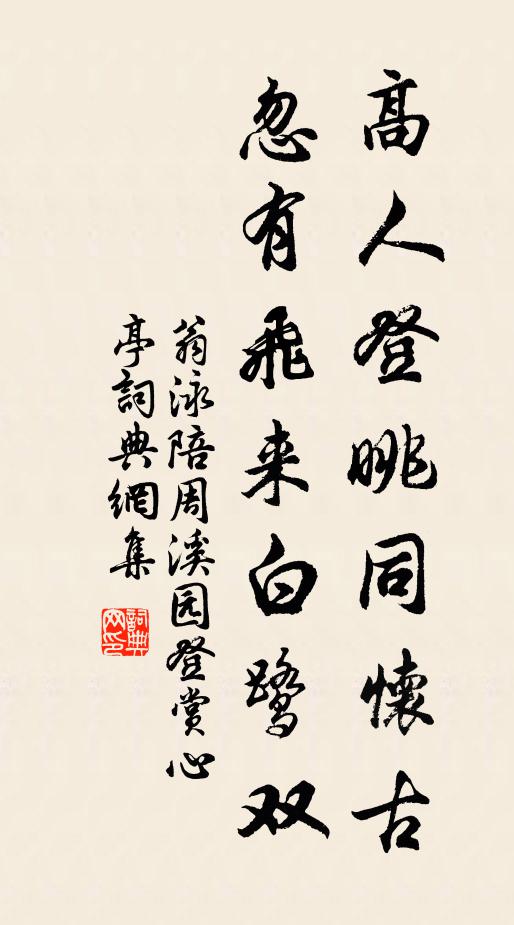 高人登眺同懷古
忽有飛来白鷺双
翁泳陪周溪园登赏心
亭詞典網集
詞典
网印